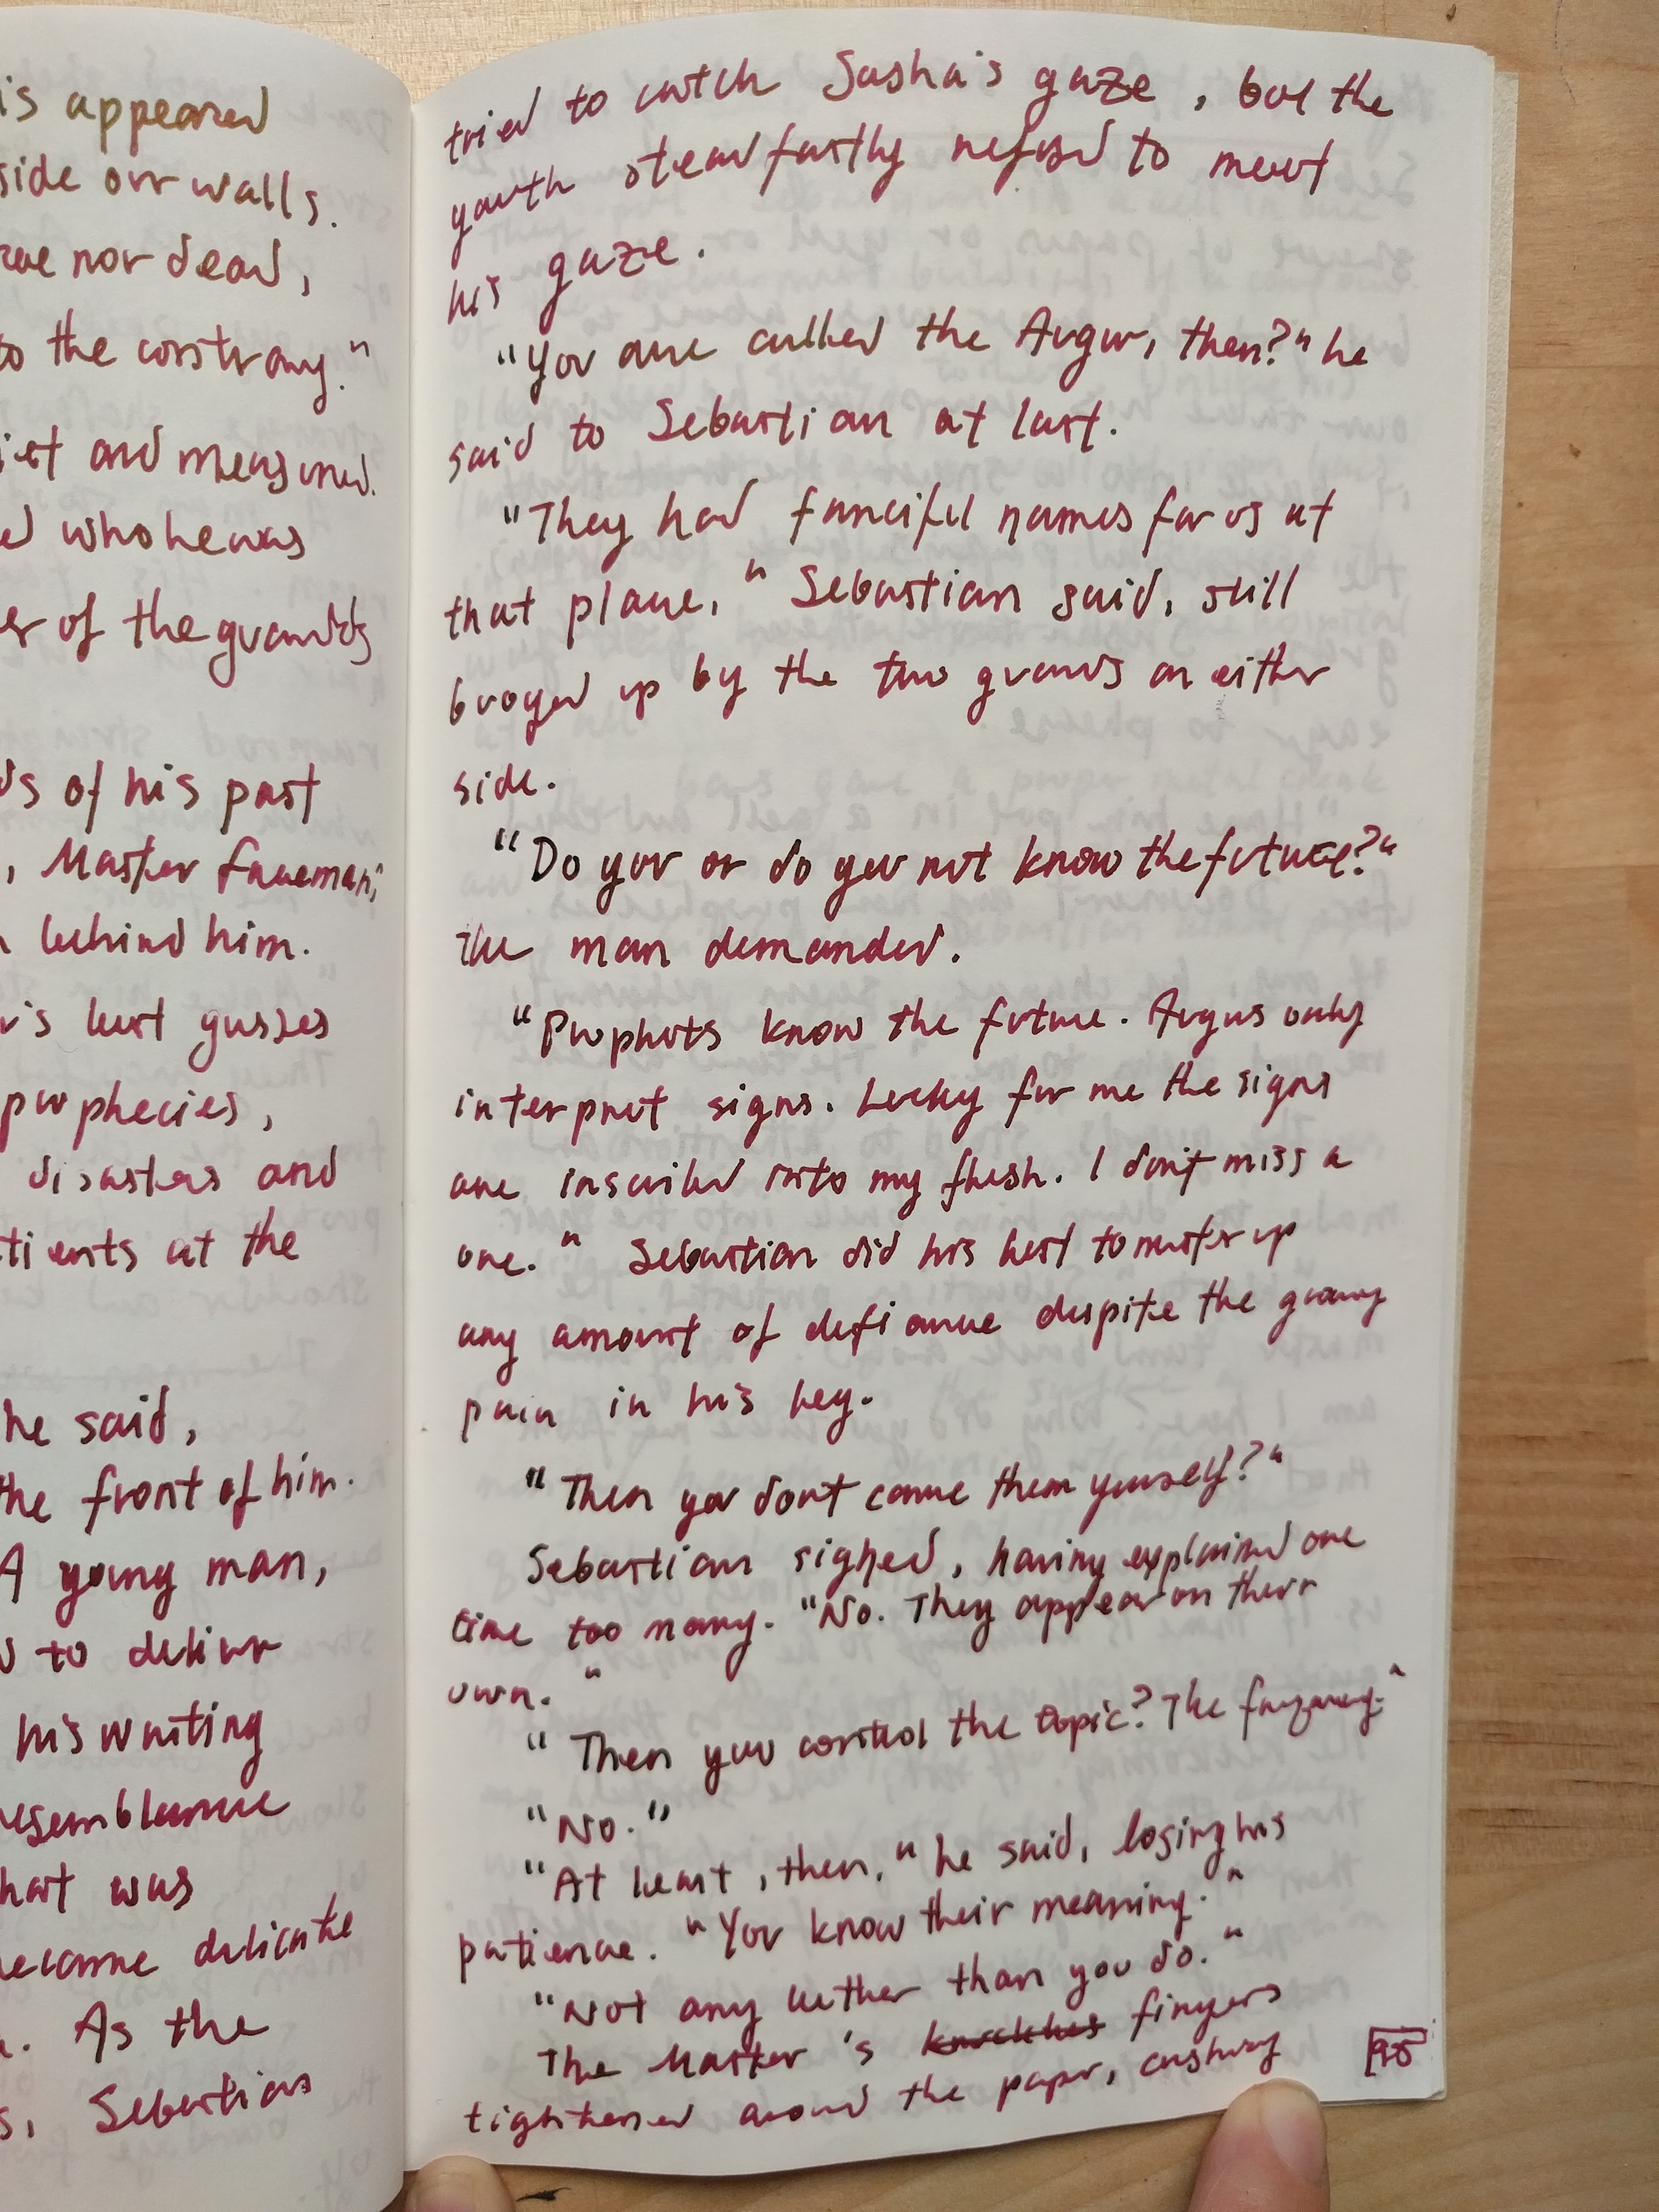 is appeared
side our walls.
nor dead,
to the contrary."
and measured.
who he was
of the guards
of his past
, Master Freeman,
behind him.
's last gusses
prophecies,
disasters and
at the
he said,
the front of him.
A young man,
to deliver
his writing
resemblance
was
became delicate
. As the
, Sebastian
tried to catch Sasha's gaze, but the
youth steadfastly refused to meet
his gaze.
"You are called the Augur, then?" he
said to Sebastian at last.
"They had fanciful names for us at
that place," Sebastian said, still
buoyed up by the two guards on either
side.
"Do you or do you not know the future?"
the man demanded.
"Prophets know the future. Augurs only
interpret signs. Lucky for me the signs
are inscribed into my flesh. I don't miss a
one." Sebastian did his best to muster up
any amount of defiance despite the growing
pain in his leg.
"Then you don't carve them yourself?"
Sebastian sighed, having explained one
time too many. "No. They appear on their
own."
"Then you control the topic? The frequency."
"No."
"At least, then," he said, losing his
patience. "You know their meaning."
"Not any better than you do."
The Master's knuckles fingers
tightened around the paper, crushing
95